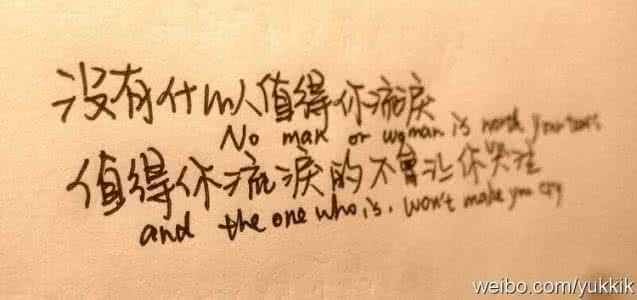 没有什么人值得你流淚
No man or woman is worth your tears
值得你流淚的不會让你哭泣
and the one who is, won't make you cry
weibo.com/yukkik